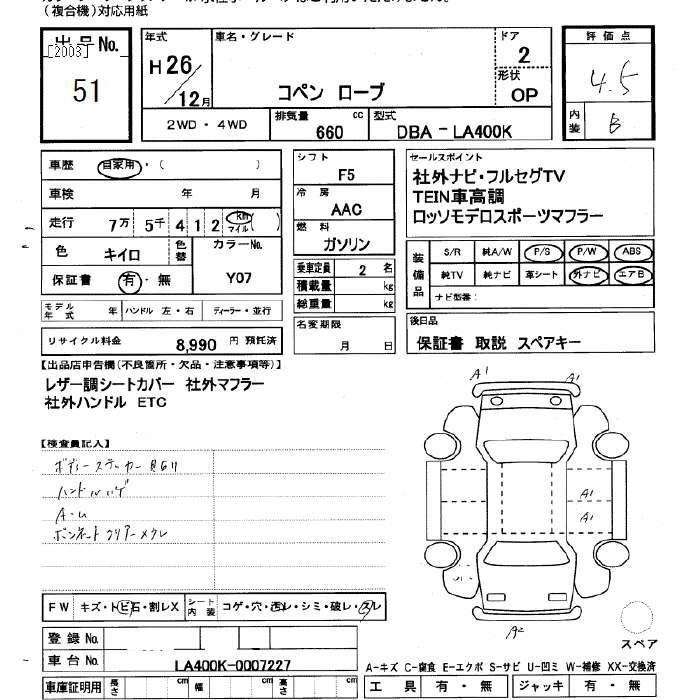 （複合機）対応用紙
出品No.
[2003]
51
年式
H26/12月
車名・グレード
コペン ローブ
ドア
2
形状
OP
評価点
4.5
内装
B
2WD・4WD
排気量 660 cc
型式 DBA－LA400K
車歴 自家用・（ ）
車検 年 月
走行 7万 5千 4 1 2 km マイル( )
色 キイロ
色替
カラーNo.
Y07
保証書 有・無
モデル年式 年 ハンドル 左・右 ディーラー・並行
リサイクル料金 8,990 円 預託済
シフト
F5
冷房
AAC
燃料
ガソリン
乗車定員 2 名
積載量 kg
総重量 kg
名変期限
月 日
セールスポイント
社外ナビ・フルセグTV
TEIN車高調
ロッソモデロスポーツマフラー
装備品
S/R 純A/W P/S P/W ABS
純TV 純ナビ 革シート 外ナビ エアB
ナビ型番：
後日品
保証書 取説 スペアキー
【出品店申告欄(不良箇所・欠品・注意事項等)】
レザー調シートカバー 社外マフラー
社外ハンドル ETC
【検査員記入】
ボディーステッカー
ハンドルハゲ
ボンネットクリアーメクレ
A1
A1
A1
A1
A2
スペア
FW キズ・トビ石・割レX
シート内装 コゲ・穴・汚レ・シミ・破レ・スレ
登録 No.
車台 No. LA400K-0007227
A-キズ C-腐食 E-エクボ S-サビ U-凹ミ W-補修 XX-交換済
車庫証明用 長さ cm 幅 cm 高さ cm
工具 有・無 ジャッキ 有・無